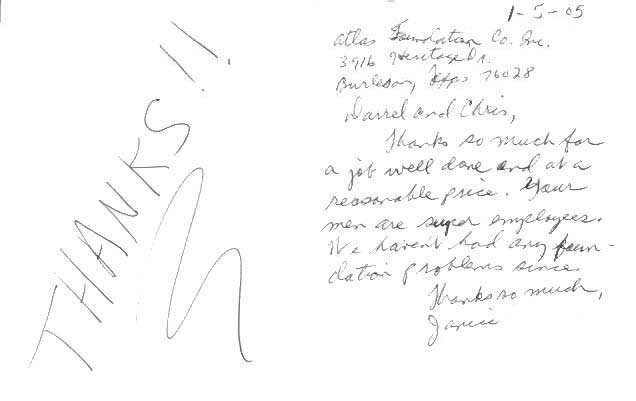 THANKS!!
1-5-05
Atlas Foundation Co. Inc.
3916 Heritage Dr.
Burleson, Texas 76028
Darrel and Chris,
Thanks so much for
a job well done and at a
reasonable price. Your
men are super employees.
We haven't had any foun-
dation problems since.
Thanks so much,
Janice